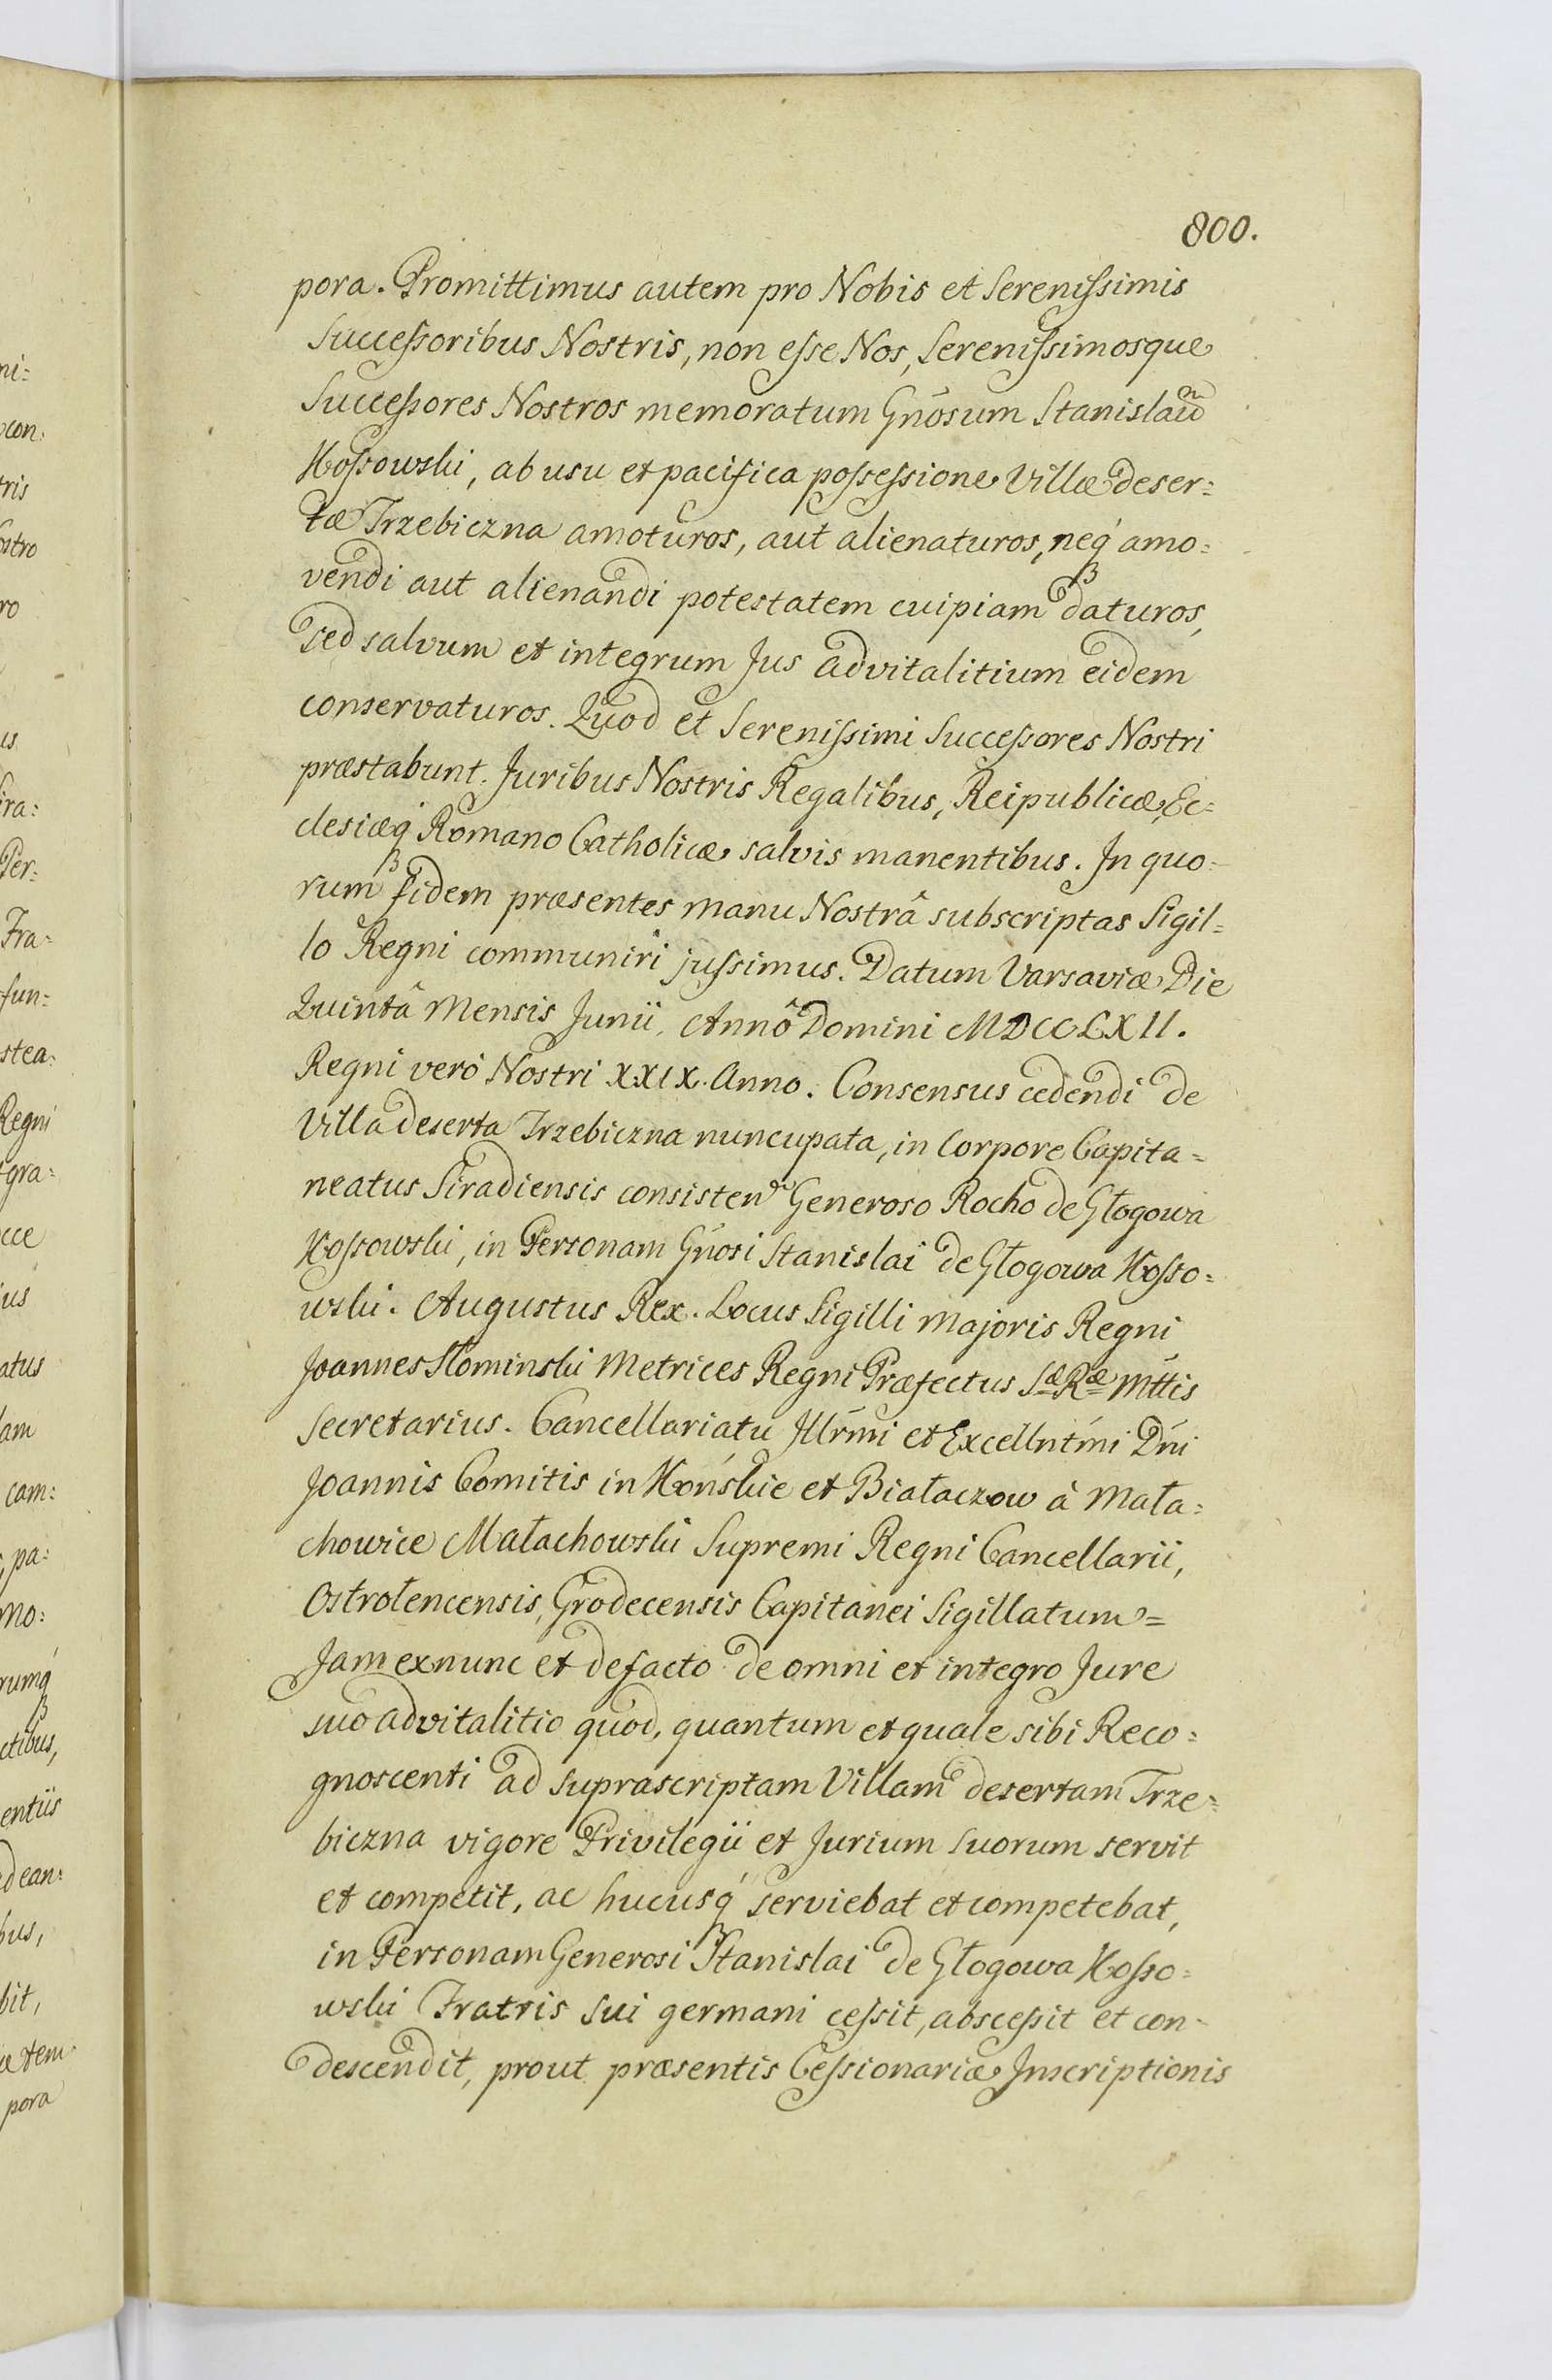 800.
pora. Promittimus autem pro Nobis et Serenissimis
Successoribus Nostris, non esse Nos, Serenissimosque
Successores Nostros memoratum Gnosum Stanislaum
Kossowski, ab usu et pacifica possessione Villæ deser=
tæ Trzebiczna amoturos, aut alienaturos, neq́ amo=
vendi aut alienandi potestatem cuipiam daturos,
sed salvum et integrum Jus advitalitium eidem
conservaturos. Quod et Serenissimi Successores Nostri
præstabunt. Juribus Nostris Regalibus, Reipublicæ, Ec=
clesiæq́ Romano Catholicæ salvis manentibus. In quo=
rum fidem præsentes manu Nostrâ subscriptas Sigil=
lo Regni communiri jussimus. Datum Varsaviæ Die
Quintâ Mensis Junii, Annô Domini MDCCLXII.
Regni verò Nostri XXIX. Anno. Consensus cedendi de
Villa deserta Trzebiczna nuncupata, in Corpore Capita=
neatus Siradiensis consisten Generoso Rocho de Głogowa
Kossowski, in Personam Gnosi Stanislai de Głogowa Kosso=
wski. Augustus Rex. Locus Sigilli Majoris Regni
Joannes Słominski Metrices Regni Præfectus Sæ Ræ Mttis
Secretarius. Cancellariatu Illrmi et Excellntmi Dni
Joannis Comitis in Końskie et Białaczow à Mała=
chowice Małachowski Supremi Regni Cancellarii,
Ostrołencensis, Grodecensis Capitanei Sigillatum=
Jam exnunc et defacto de omni et integro Jure
suo advitalitio quod, quantum et quale sibi Reco=
gnoscenti ad suprascriptam Villam desertam Trze=
biczna vigore Privilegii et Jurium Suorum servit
et competit, ac hucusq́ serviebat et competebat,
in Personam Generosi Stanislai de Głogowa Kosso=
wski Fratris Sui germani cessit, abscessit et con=
descendit, prout præsentis Cessionariæ Inscriptionis